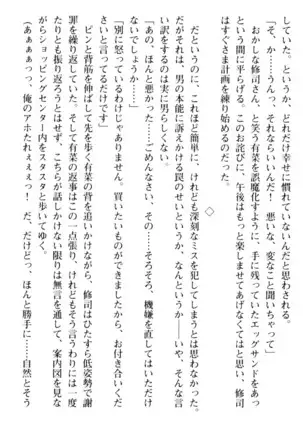 していた。どれだけ幸せに慣れていないんだと思う。
「そ、か……うんっ、それならいいんだ！　悪いな、変なこと聞いちゃって」
おかしな修司さん、と笑う有菜を誤魔化すように、手に残っていたエッグサンドをあっ
という間に平らげる。このお詫びに、午後はもっと楽しませてあげなくてはと思い、修司
はすぐさま計画を練り始めるのだった。
◇
だというのに、これほど簡単に、けれども深刻なミスを犯してしまうとは思わなかった。
だがそれは、男の本能に訴えかける罠のせいというか、なんというか――いや、そんな言
い訳をするのは実に男らしくない。
「あの、ほんと悪かった……ごめんなさい、その……そろそろ、機嫌を直してはいただけ
ないでしょうか……」
「別に怒っているわけじゃありません。買いたいものができましたから、お付き合いくだ
さいと言ってるだけです」
ピンと背筋を伸ばして先を歩く有菜の背を追いかけながら、修司はひたすら低姿勢で謝
罪を繰り返していた。けれども有菜の返事はこの一点張り、けれどもそう言うわりには一度
たりとも振り返ろうとはせず、こちらが話しかけない限りは無言を通して、案内図を見な
がらショッピングセンター内をスタスタと歩いてゆく。
（あぁぁぁっっ、俺のアホたれぇぇぇっ！　だ、だけどっ、ほんと勝手に……自然とそう